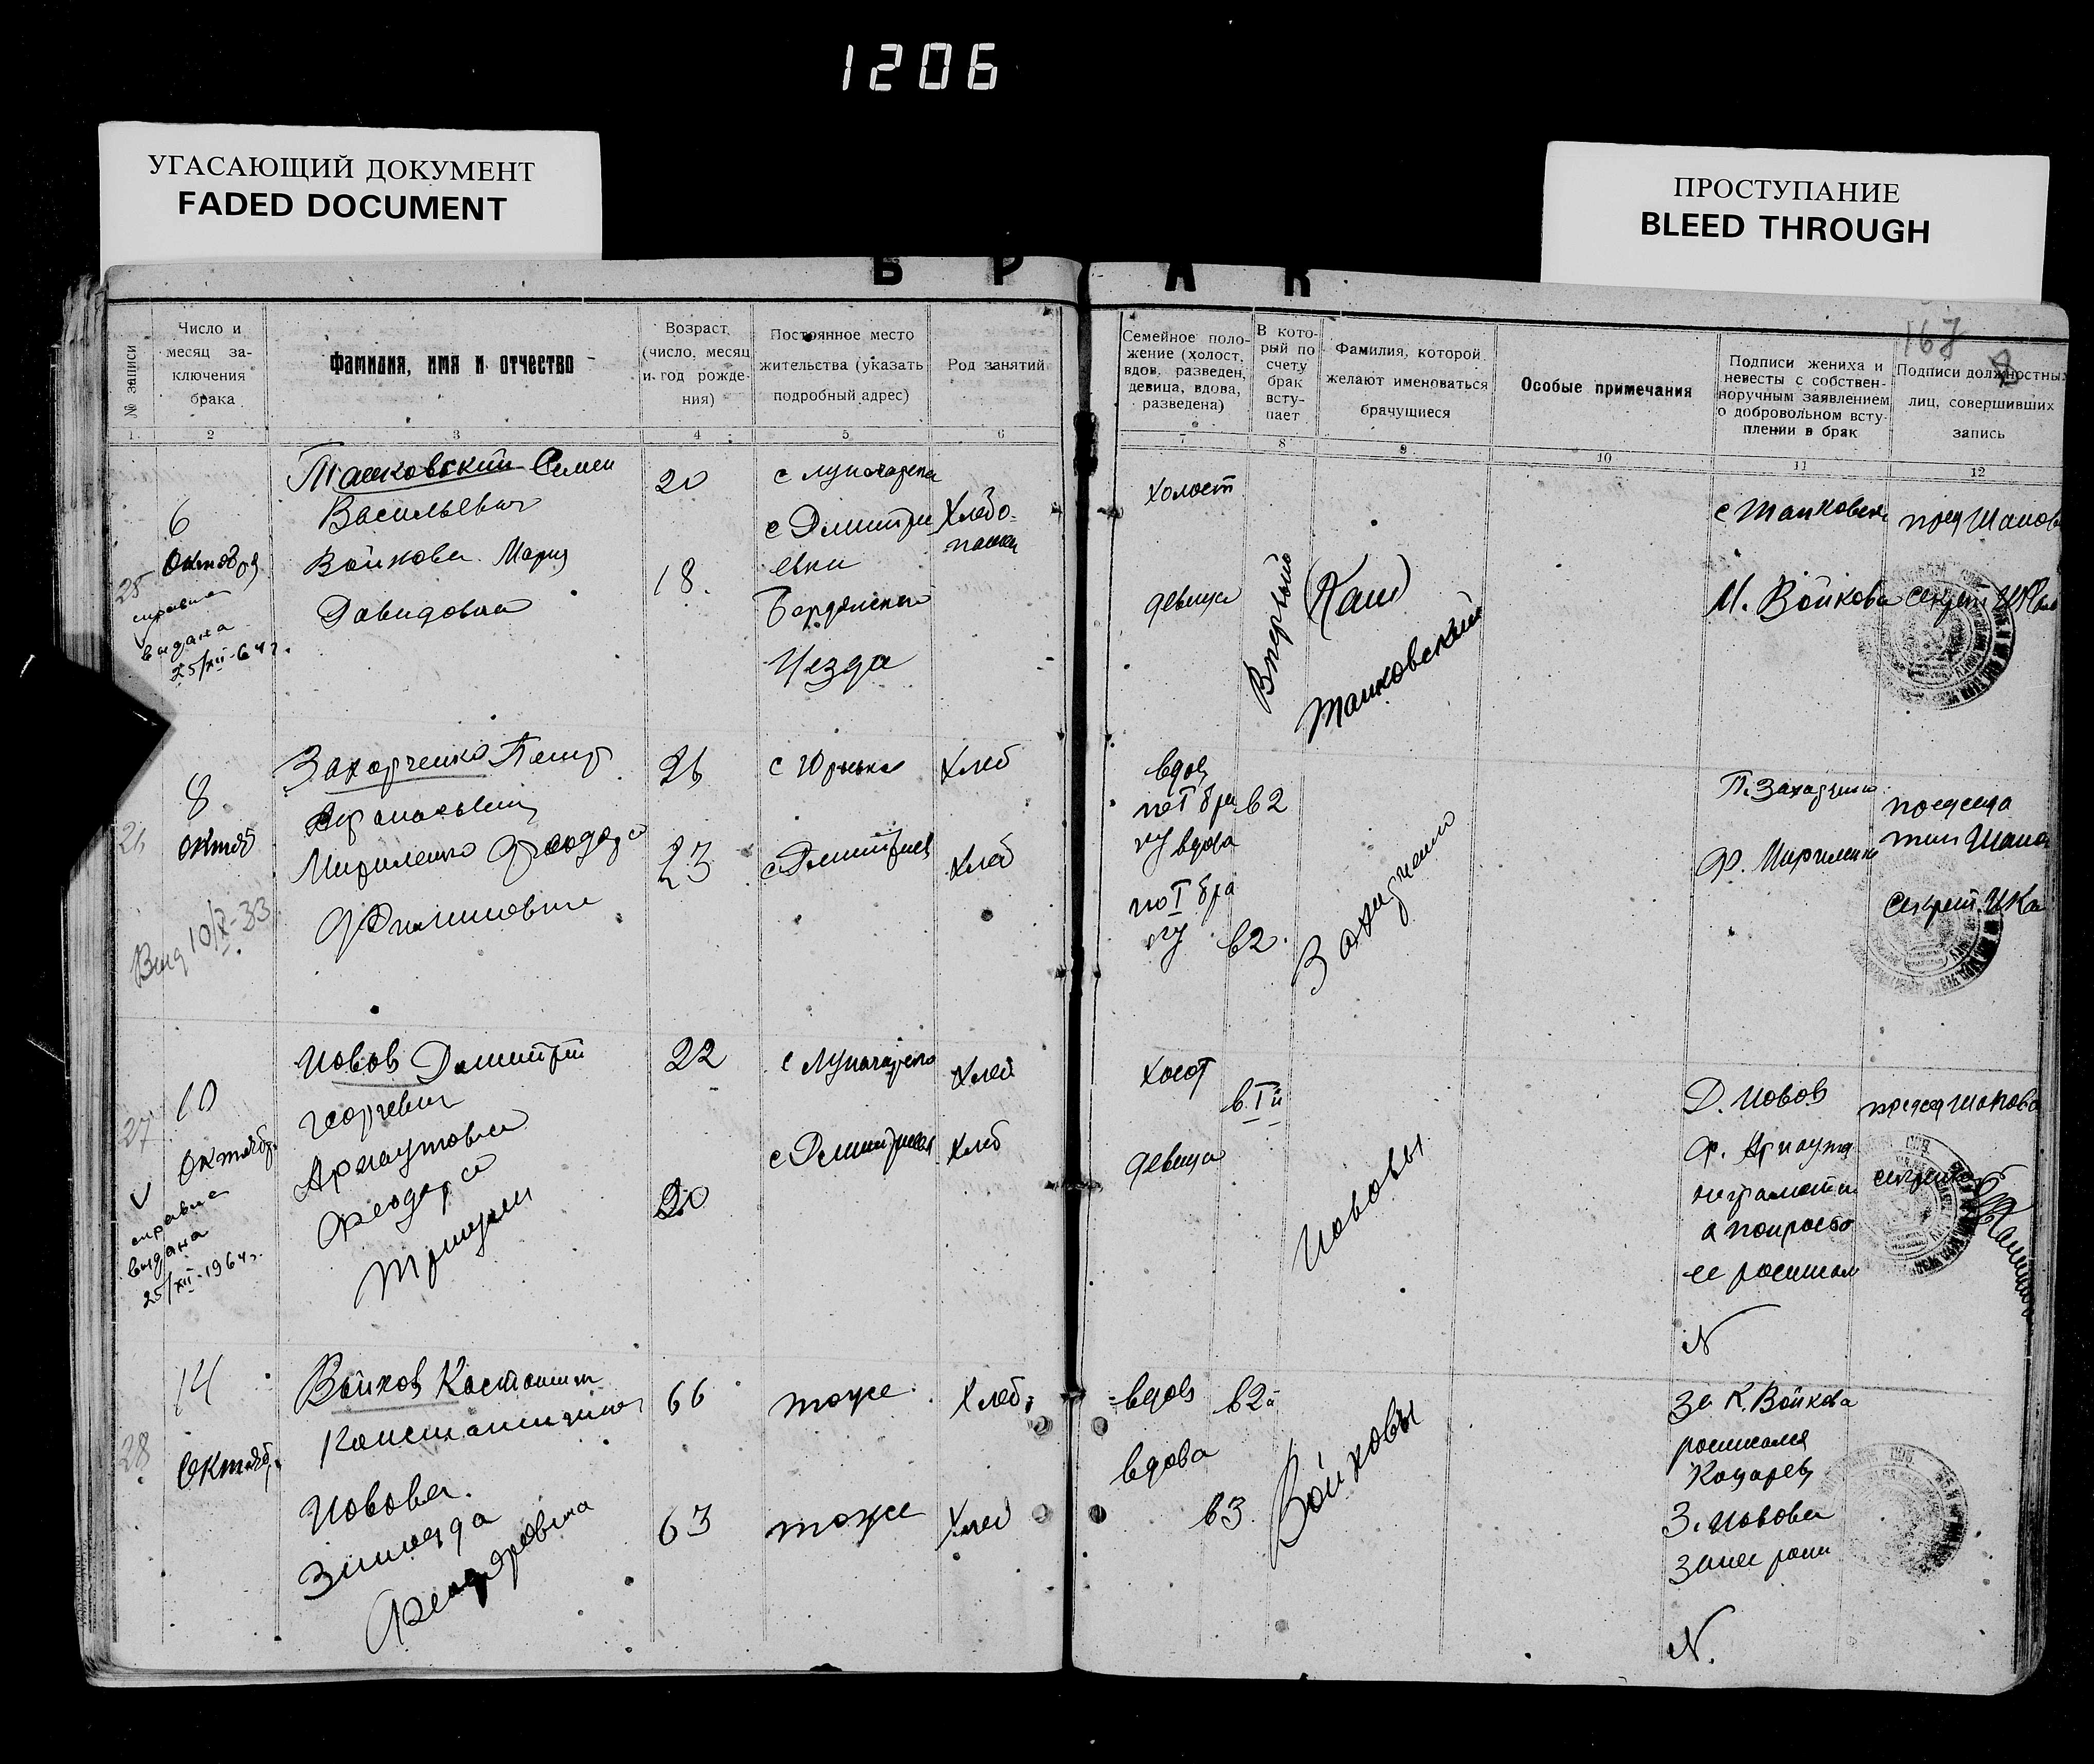 1206
УГАСАЮЩИЙ ДОКУМЕНТ
FADED DOCUMENT
ПРОСТУПАНИЕ
BLEED THROUGH
Б Р А К
167
8
№ записи
Число и
месяц за-
ключения
брака
Фамилия, имя и отчество
Возраст
(число, месяц
и год рожде-
ния)
Постоянное место
жительства (указать
подробный адрес)
Род занятий
Семейное поло-
жение (холост,
вдов, разведен,
девица, вдова,
разведена)
В кото-
рый по
счету
брак
всту-
пает
Фамилия, которой
желают именоваться
брачущиеся
Особые примечания
Подписи жениха и
невесты с собствен-
норучным заявлением
о добровольном всту-
плении в брак
Подписи должностных
лиц, совершивших
запись
1 2 3 4 5 6 7 8 9 10 11 12
25
6
Октября
справка
выдана
25/XII-64г.
Ташковский Семен
Васильевич
Войкова Мария
Давидовна
20
18.
с Луначарска
с Дмитри
евки
Бердянского
Уезда
Хлебо-
пашец
холост
девица
Впервые
(Таш)
Ташковский
с Ташковск
М. Войкова
пред Шапов
секрет
8
октяб
Выд 10/X-33
Захарченко Петр
Феодора
Филиповна
26
23
с Юрьевка
с Дмитриев
Хлеб
Хлеб
вдов
по I бра
ку вдова
по I бра
ку
в2
в2.
Захарченко
П. Захарченко
Ф.
председа
тель Шапов
Секрет.
27
10
Октябр.
справка
выдана
25/XII-1964г.
Иовов Дмитрий
Георгевич
Арнаутова
Феодора
22
20
с Луначарско
с Дмитриевк
Хлеб
Хлеб
хост
девица
в I й
Иововы
Д. Иовов
Ф. Арнаута
неграмотн
а попрозбо
ее росписал
N
председ Шапова
секретар
28
14
Октябр.
Войков Костантин
Константинович
Иовова
Зинаида
Феодоровна
66
63
тоже
тоже
Хлеб
Хлеб
вдов
вдова
в2й
в3.
Войковы
За К. Войкова
росписался
Кацарев
З. Иовова
занее роспи
N.